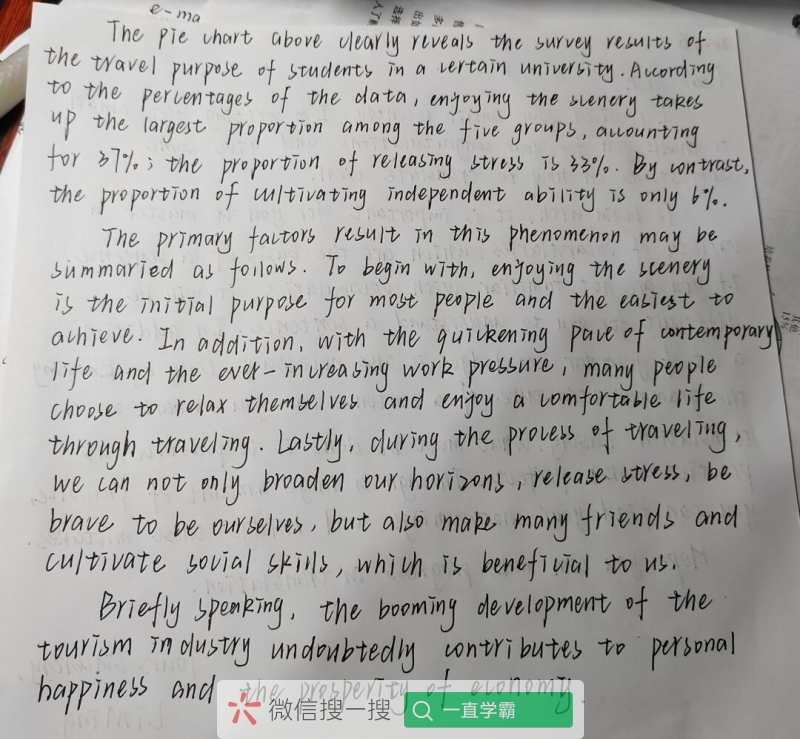 e-ma
The pie chart above clearly reveals the survey results of
the travel purpose of students in a certain university. According
to the percentages of the data, enjoying the scenery takes
up the largest proportion among the five groups, accounting
for 37%; the proportion of releasing stress is 33%. By contrast,
the proportion of cultivating independent ability is only 6%.
The primary factors result in this phenomenon may be
summaried as follows. To begin with, enjoying the scenery
is the initial purpose for most people and the easiest to
achieve. In addition, with the quickening pace of contemporary
life and the ever-increasing work pressure, many people
choose to relax themselves and enjoy a comfortable life
through traveling. Lastly, during the process of traveling,
we can not only broaden our horizons, release stress, be
brave to be ourselves, but also make many friends and
cultivate social skills, which is beneficial to us.
Briefly speaking, the booming development of the
tourism industry undoubtedly contributes to personal
happiness and the prosperity of economy.
微信搜一搜 一直学霸